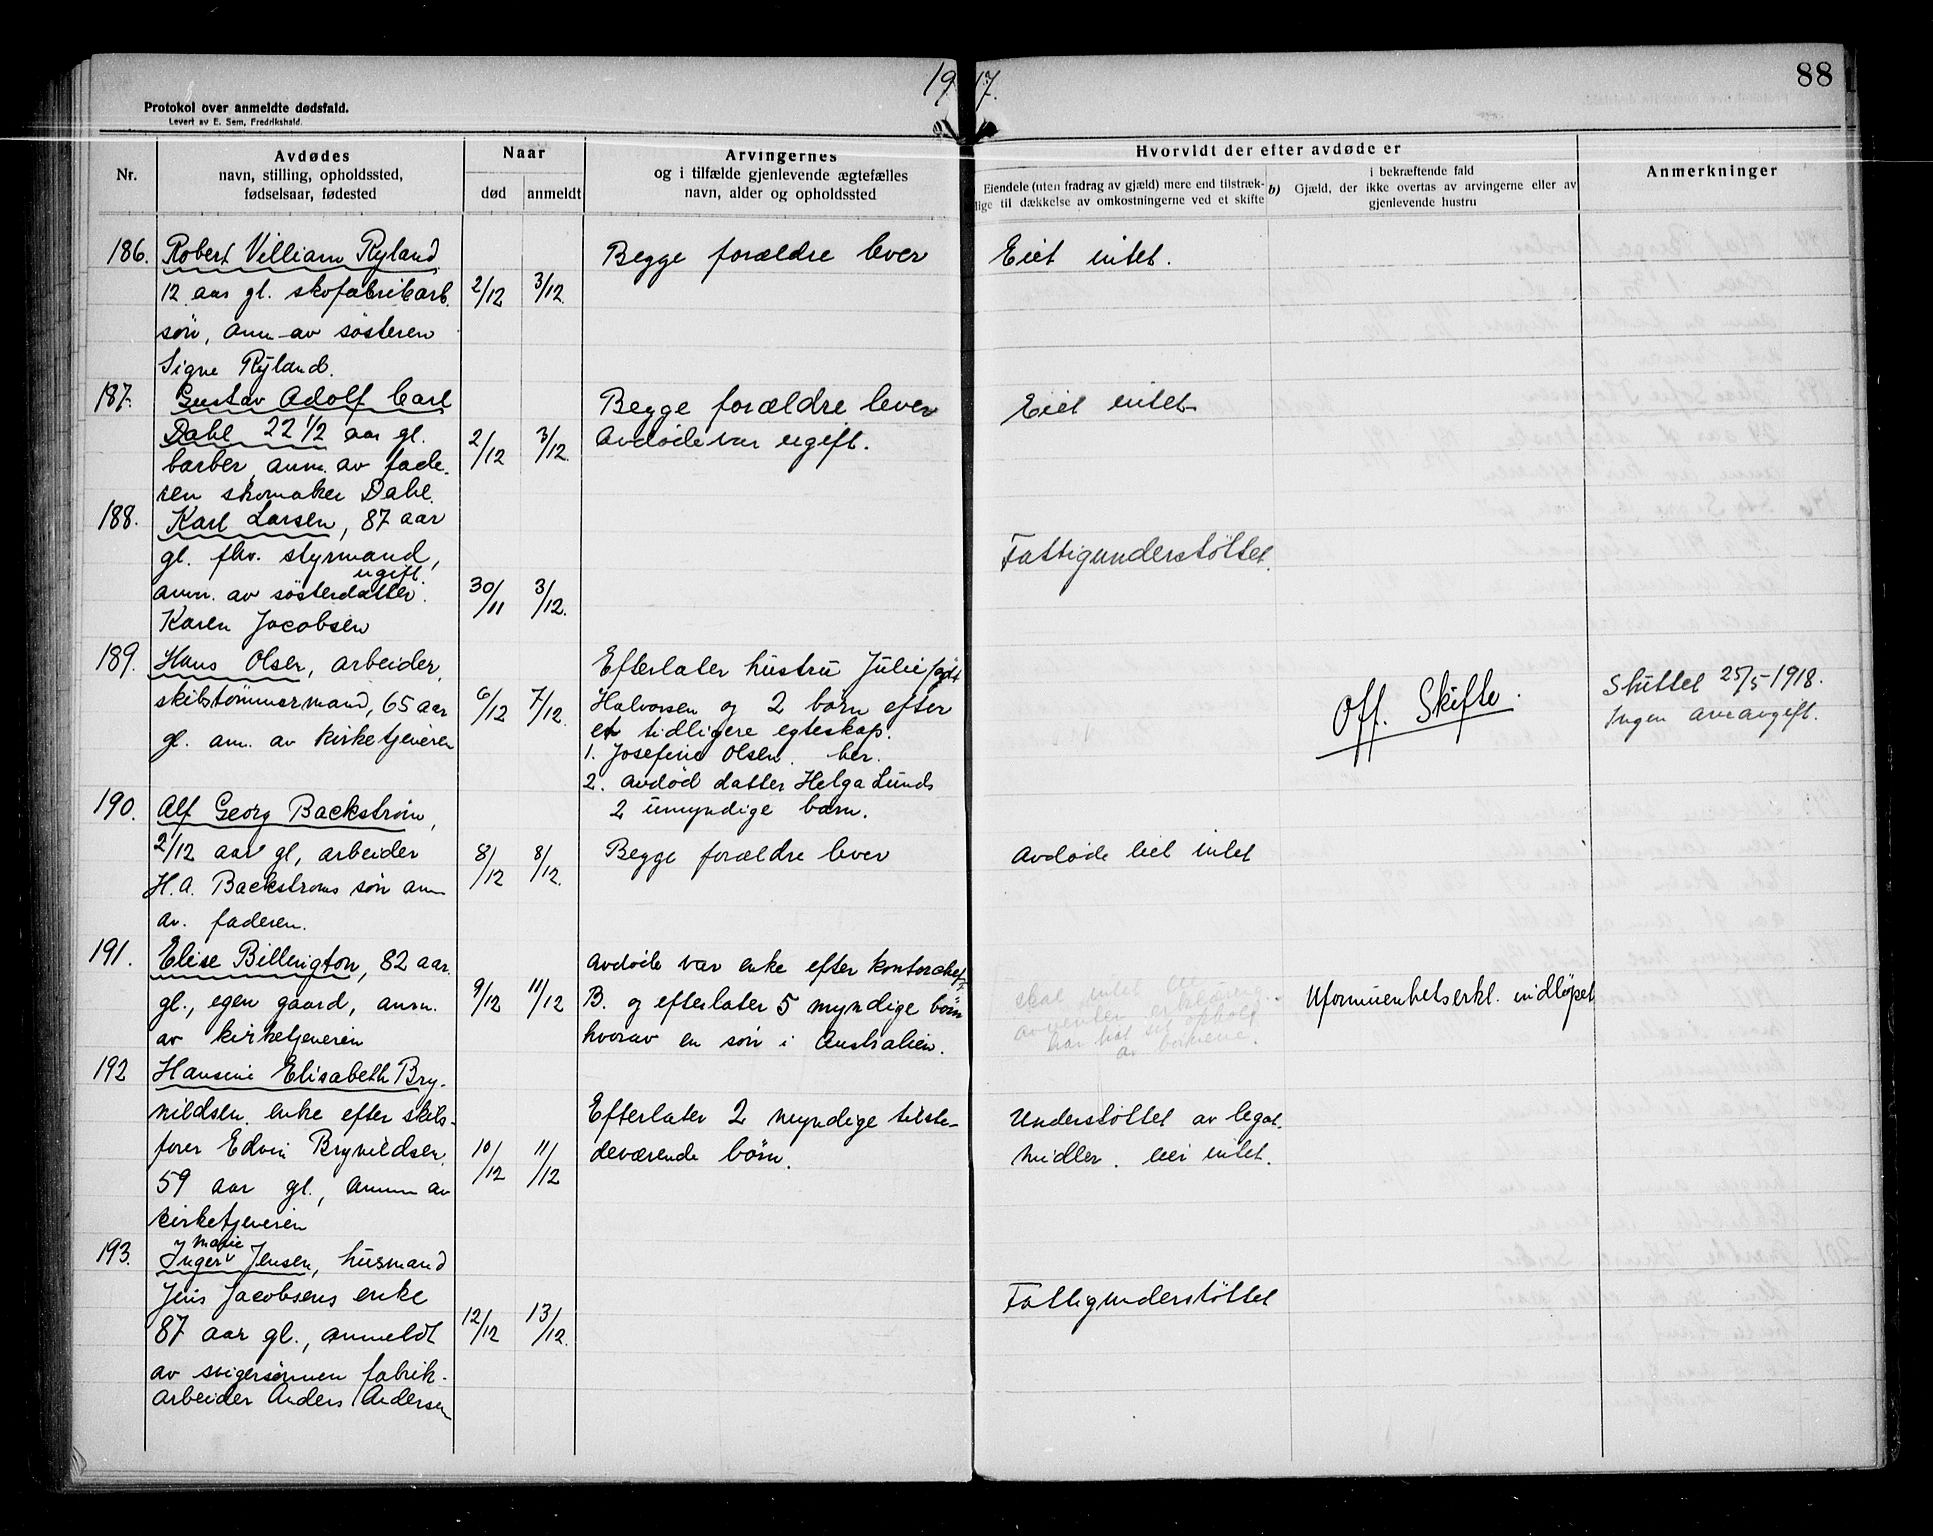 1917.
88
Protokol over anmeldte dødsfald.
Levert av E. Sem, Fredrikshald.
Nr.
Avdødes
navn, stilling, opholdssted,
fødselsaar, fødested
Naar
død
anmeldt
Arvingernes
og i tilfælde gjenlevende ægtefælles
navn, alder og opholdssted
Hvorvidt der efter avdøde er
Eiendele (uten fradrag av gjæld) mere end tilstræk-
lige til dækkelse av omkostningerne ved et skifte
b)
i bekræftende fald
Gjæld, der ikke overtas av arvingerne eller av
gjenlevende hustru
Anmerkninger
186. Robert Villiam Ryland
12 aar gl. skofabrikarb.
søn, anm. av søsteren
Signe Ryland.
2/12 3/12.
Begge forældre lever
Eiet intet.
187. Gustav Adolf Carl
Dahl 22 1/2 aar gl.
barber, anm. av fade-
ren skomaker Dahl.
2/12 3/12.
Begge forældre lever
Avdøde var ugift.
Eiet intet
188. Karl Larsen, 87 aar
gl. fhv. styrmand,
ugift.
anm. av søsterdatter.
Karen Jacobsen
30/11 3/12.
Fattigunderstøttet.
189. Hans Olsen, arbeider,
skibstømmermand, 65 aar
gl. am. av kirketjeneren
6/12 7/12.
Efterlater hustru Julie født
Halvorsen og 2 barn efter
et tidligere egteskap.
1. Josefine Olsen. her.
2. Avdød datter Helga Lunds
2 umyndige barn.
Off. Skifte.
Sluttet 25/5-1918.
Ingen arveavgift.
190. Alf Georg Backstrøm,
2/12 aar gl, arbeider
H. A. Backstrøms søn anm
av. faderen.
8/12 8/12.
Begge forældre lever
Avdøde eiet intet
191. Elise Billington, 82 aar.
gl., egen gaard, anm.
av kirketjeneren
9/12 11/12
Avdøde var enke efter kontorchef
B. og efterlater 5 myndige børn
hvorav en søn i Australien.
skal intet
erklæring.
har hat sit ophold
av børnene.
Uformuenhetserkl. indløpet
192 Hansine Elisabeth Bry-
nildsen, enke efter skibs-
fører Edvin Brynildsen,
59 aar gl., anm av
kirketjeneren
10/12 11/12
Efterlater 2 myndige tilste-
deværende børn.
Understøttet av legat.
midler. eier intet.
193. Marie
Inger Jensen, husmand
Jens Jacobsens enke
87 aar gl., anmeldt
av svigersønnen fabrik-
arbeider Anders Andersen
12/12 13/12.
Fattigunderstøttet